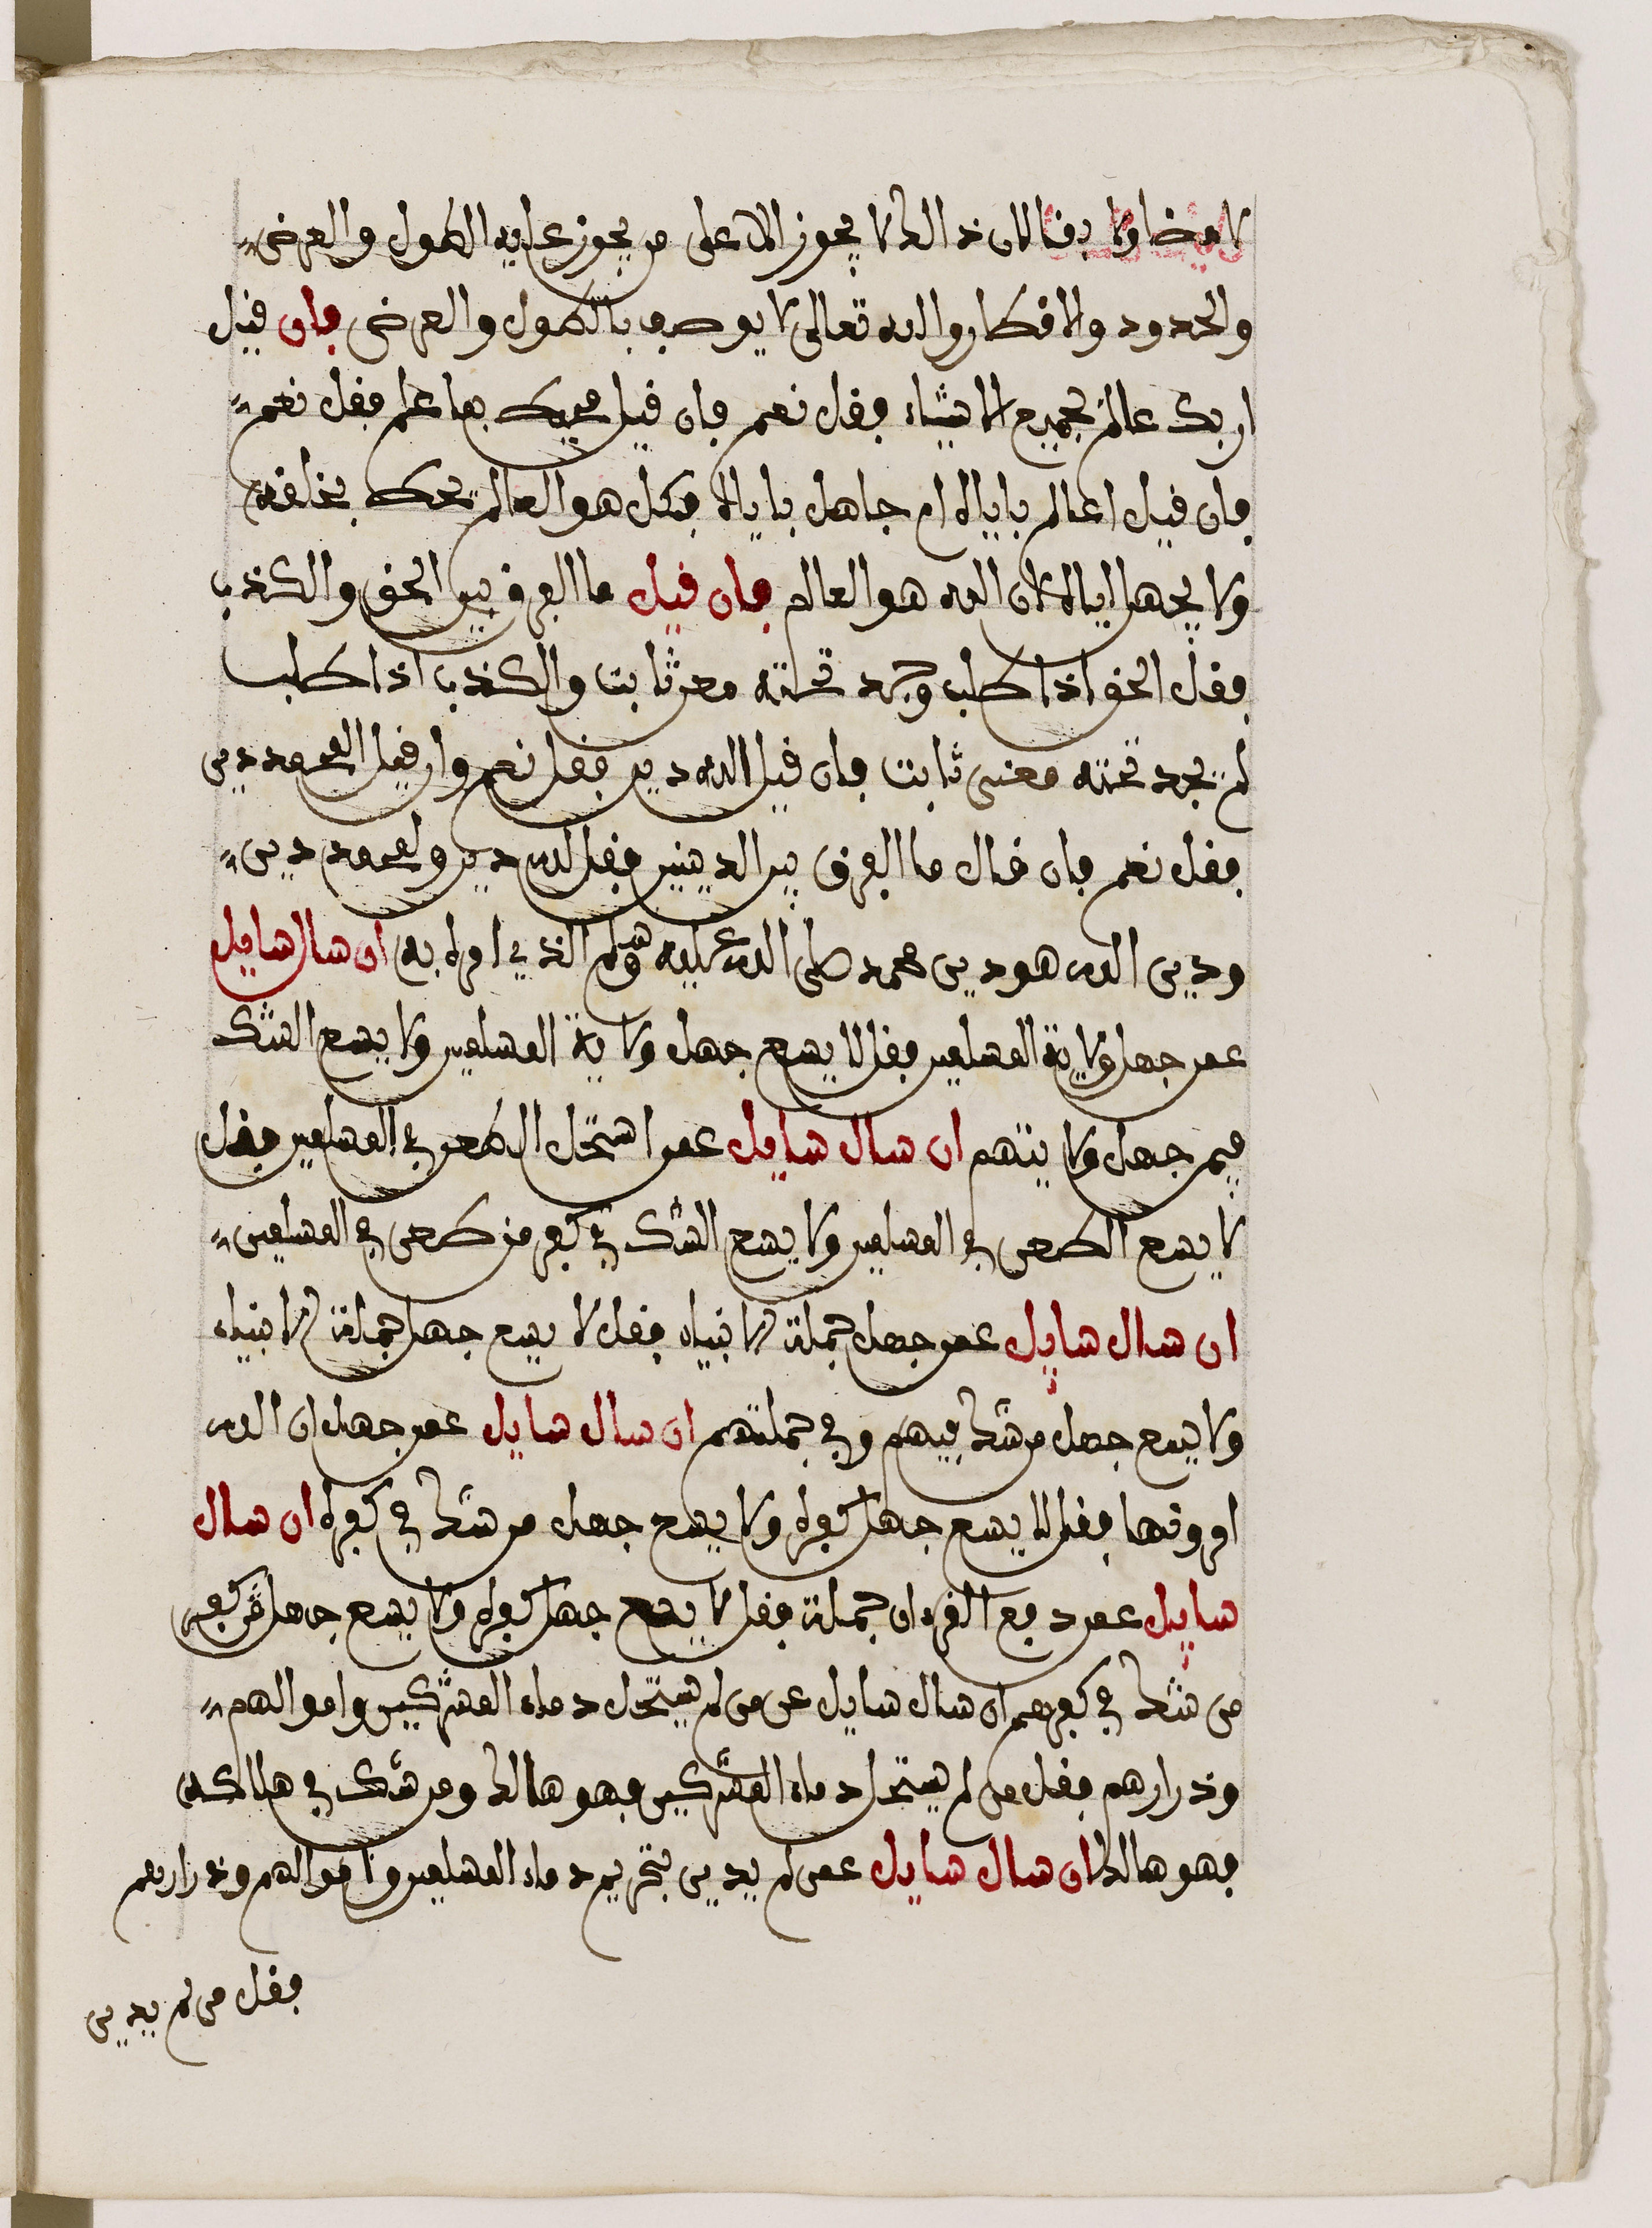 لا مضا ولا دفنا لان ذالك لا يجوز الا على من يجوز عليه الطول والعرض
والحدود والافطار والله تعالى لا يوصف بالطول والعرض فان قيل
اربك عالم بجميع الاشياء فقل نعم فان قيل فيك بها علم فقل نعم
فان قيل اعالم باياك ام جاهل باياك فقل هو العالم بك بخلقه
ولا يجهل اياك لان الله هو العالم فان قيل ما الفرق بين الحق والكذب
فقل الحق اذا طلب وجد تحته معنى ثابت والكذب اذا طلب
لم يجد تحته معنى ثابت فان قيل الله دين فقل نعم وان قيل المحمد دين
فقل نعم فان قال ما الفرق بين الدينين فقل لله دين ولمحمد دين
ودين الله هو دين محمد صلى الله عليه وسلم الذي امره به ان سال سايل
عمن جهل ولاية المسلمين فقل لا يسع جهل ولاية المسلمين ولا يسع الشك
فيمن جهل ولايتهم ان سال سايل عمن استحل الطعن في المسلمين فقل
لا يسع الطعن في المسلمين ولا يسع الشك في كفر من طعن في المسلمين
ان سال سايل عمن جهل جملة الانبياء فقل لا يسع جهل جملة الانبياء
ولا يسع جهل من شك فيهم وفي جملتهم ان سال سايل عمن جهل ان الله
امر ونها فقل لا يسع جهل كفره ولا يسع جهل من شك في كفره ان سال
سايل عمن دفع القرءان جملة فقل لا يسع جهل كفره ولا يسع جهل من كفر
من شك في كفرهم ان سال سايل عن من لم يستحل دماء المشركين واموالهم
وذرارهم فقل من لم يستحل دماء المشركين فهو هالك ومن شك في هلاكه
فهو هالك ان سال سايل عمن لم يدين بتحريم دماء المسلمين واموالهم وذرارهم
فقل من لم يدين